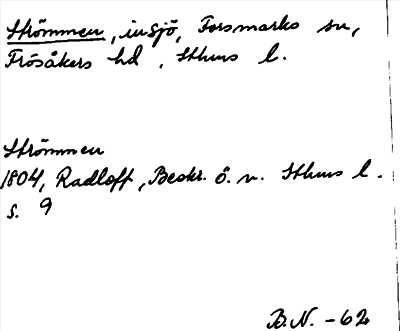 Strömmen, insjö, Forsmarks sn,
Frösåkers hd, Sthms l.
Strömmen
1804, Radloff, Beskr. ö. n. Sthms l.
s. 9
B.N. -62